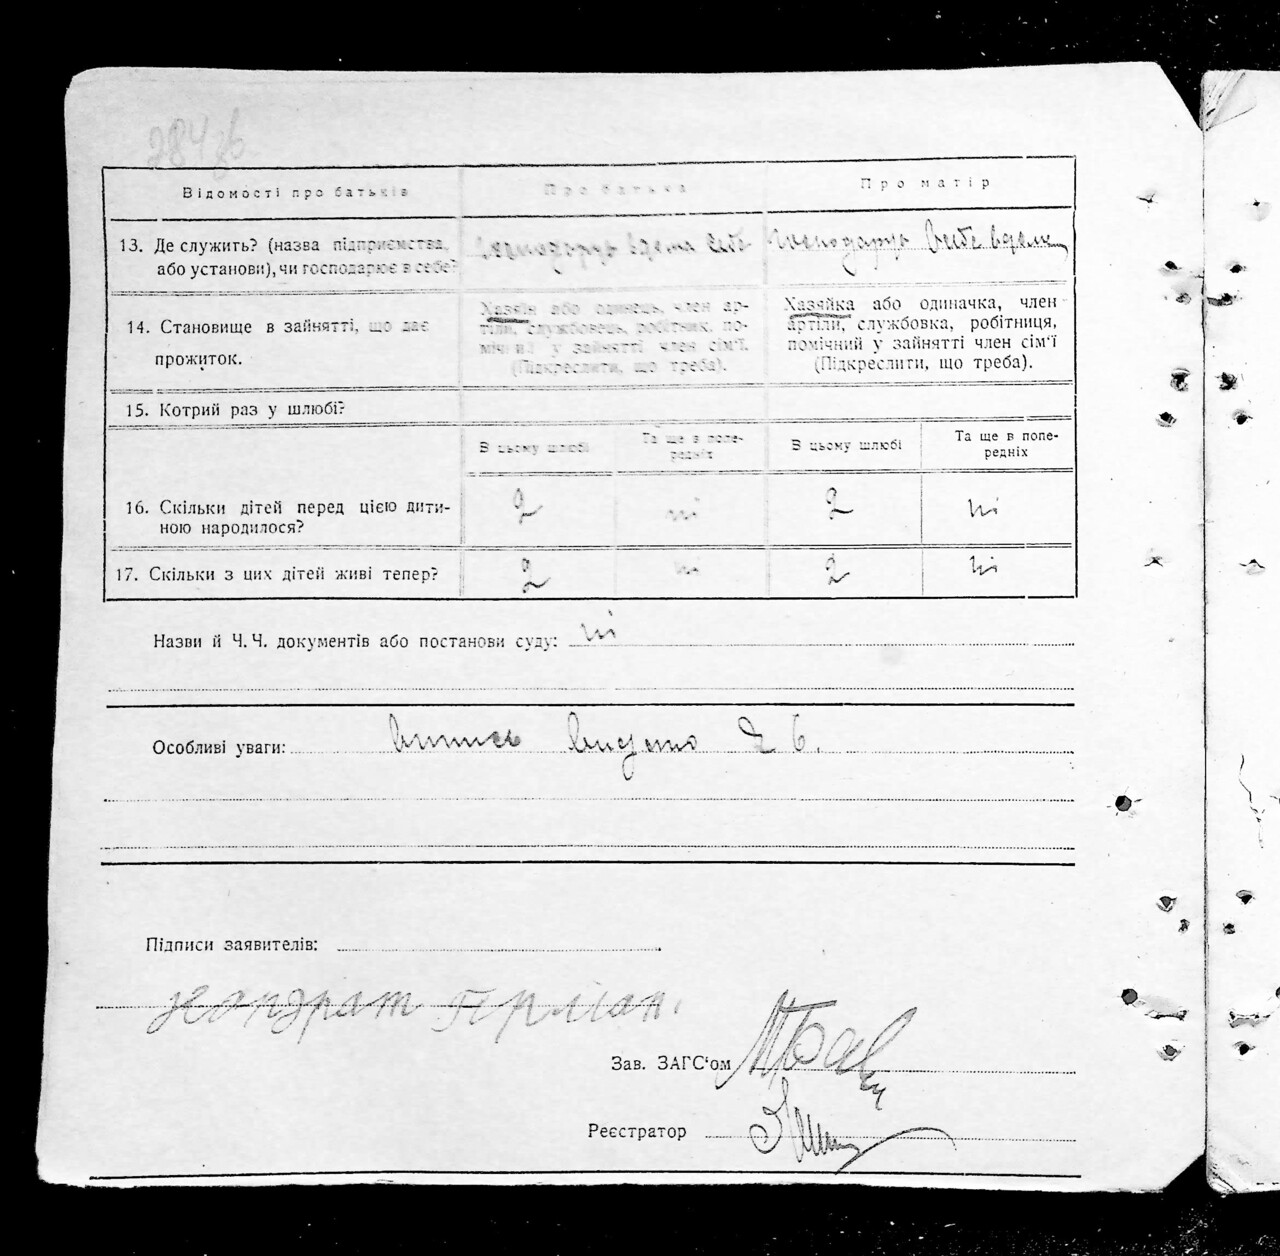 284 зв.
Відомості про батьків
Про батька
Про матір
13. Де служить? (назва підприємства, або установи), чи господарює в себе?
господарює вдома
господарує
14. Становище в зайнятті, що дає прожиток.
Хазяїн або одинець, член ар-
тіли, службовець, робітник, по-
мічний у зайнятті член сім'ї.
(Підкреслити, що треба).
Хазяйка або одиначка, член
артіли, службовка, робітниця,
помічний у зайнятті член сім'ї
(Підкреслити, що треба).
15. Котрий раз у шлюбі?
В цьому шлюбі
Та ще в попе-
редніх
В цьому шлюбі
Та ще в попе-
редніх
16. Скільки дітей перед цією дити-
ною народилося?
2 ні 2 ні
17. Скільки з цих дітей живі тепер?
2 ні 2 ні
Назви й Ч. Ч. документів або постанови суду: ні
Особливі уваги: Випись видано
Підписи заявителів:
Кондрат Герман.
Зав. ЗАГС'ом
Реєстратор